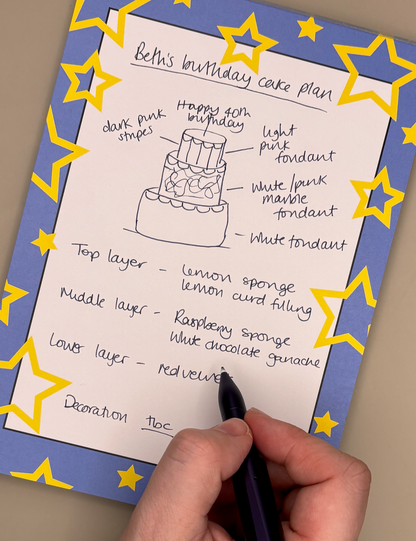 Beth's birthday cake plan
Happy 40th
birthday
dark pink
stripes
light
pink
fondant
White/pink
marble
fondant
White fondant
Top layer - lemon sponge
lemon curd filling
Middle layer - Raspberry sponge
White chocolate ganache
Lower layer - red velvet
Decoration tbc